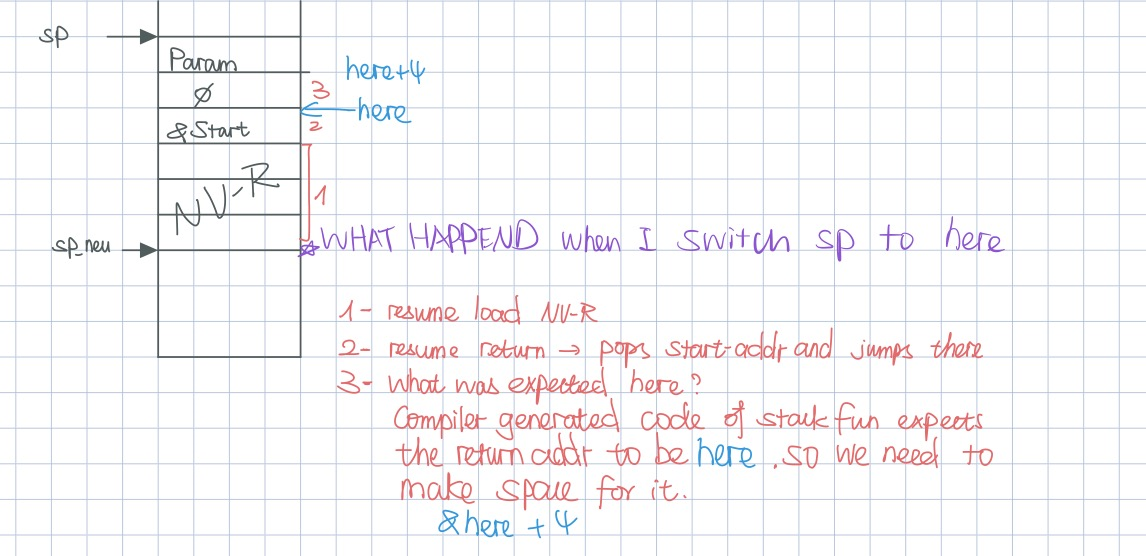 sp
Param
here+4
Ø
3
here
&Start
2
NV-R
1
sp_neu
WHAT HAPPEND when I switch sp to here
1- resume load NV-R
2- resume return → pops start-addr and jumps there
3- what was expected here?
Compiler generated code of stack fun expects
the return addr to be here, so we need to
make space for it.
&here + 4